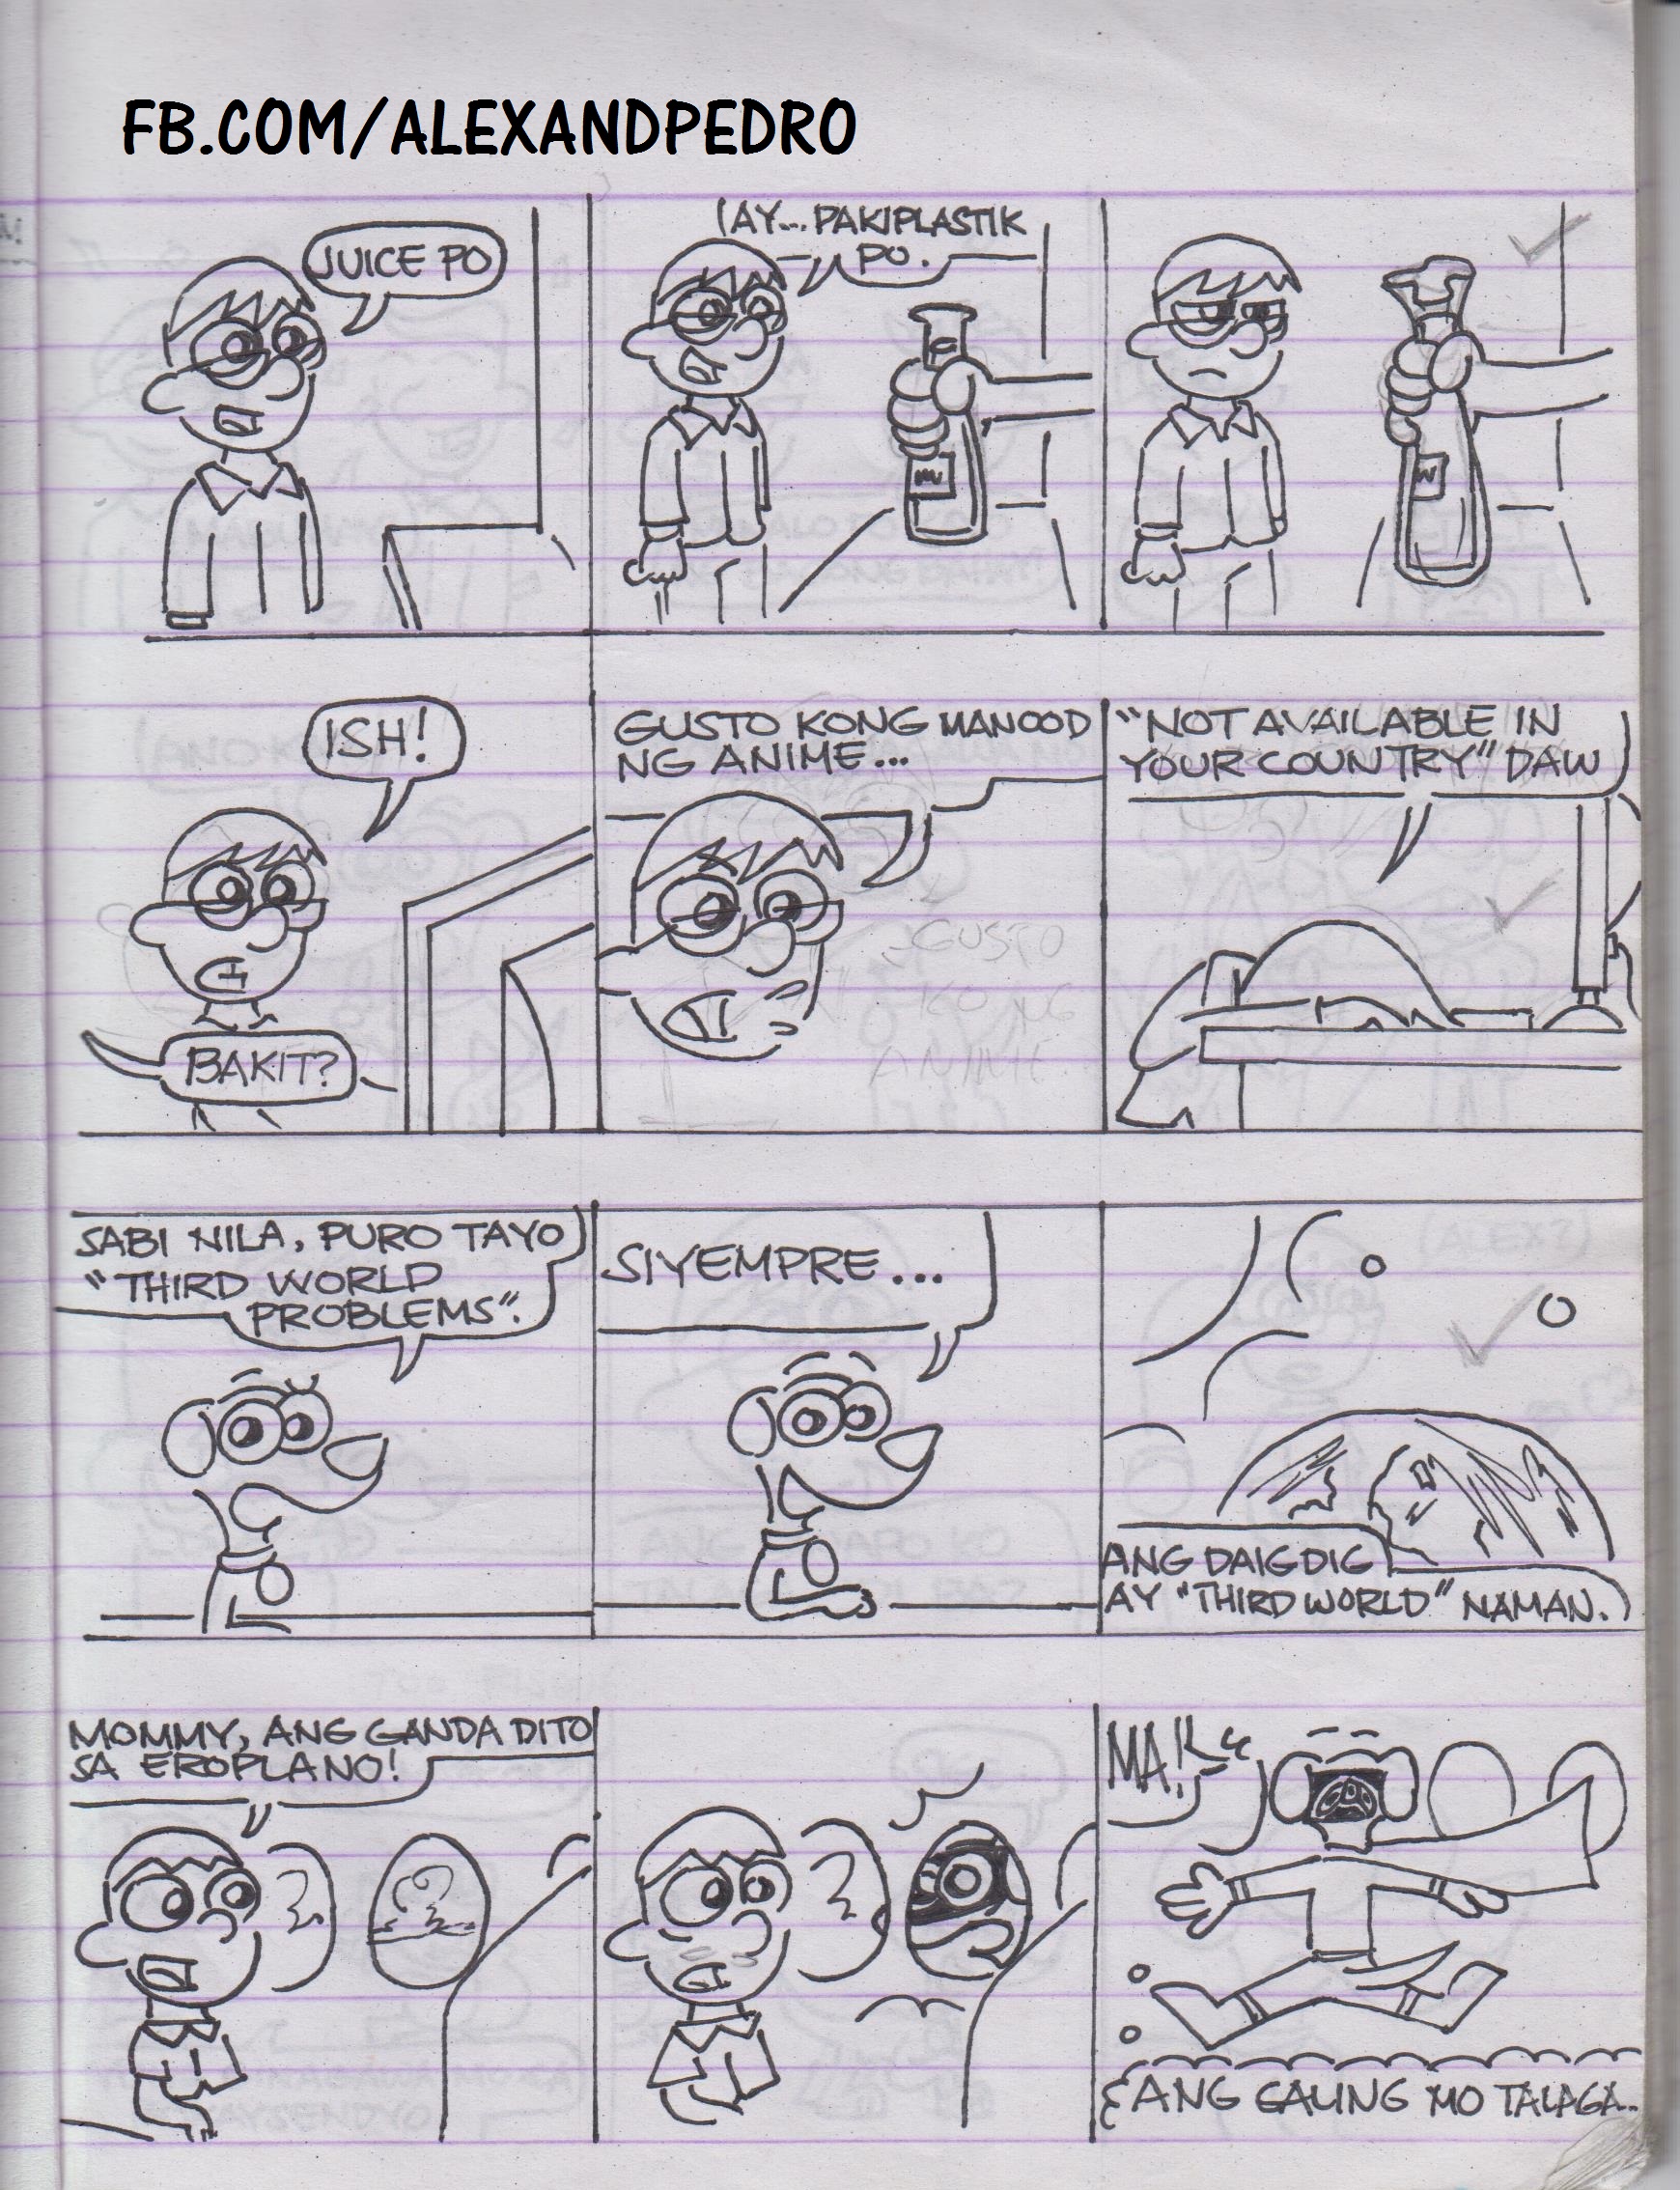 FB.COM/ALEXANDPEDRO
JUICE PO
AY... PAKIPLASTIK
PO.
ISH!
BAKIT?
GUSTO KONG MANOOD
NG ANIME...
"NOT AVAILABLE IN
YOUR COUNTRY" DAW
GUSTO
KONG
ANIME
SABI NILA, PURO TAYO
"THIRD WORLD
PROBLEMS".
SIYEMPRE...
ANG DAIGDIG
AY "THIRD WORLD" NAMAN.
MOMMY, ANG GANDA DITO
SA EROPLANO!
MA!
ANG GALING MO TALAGA..